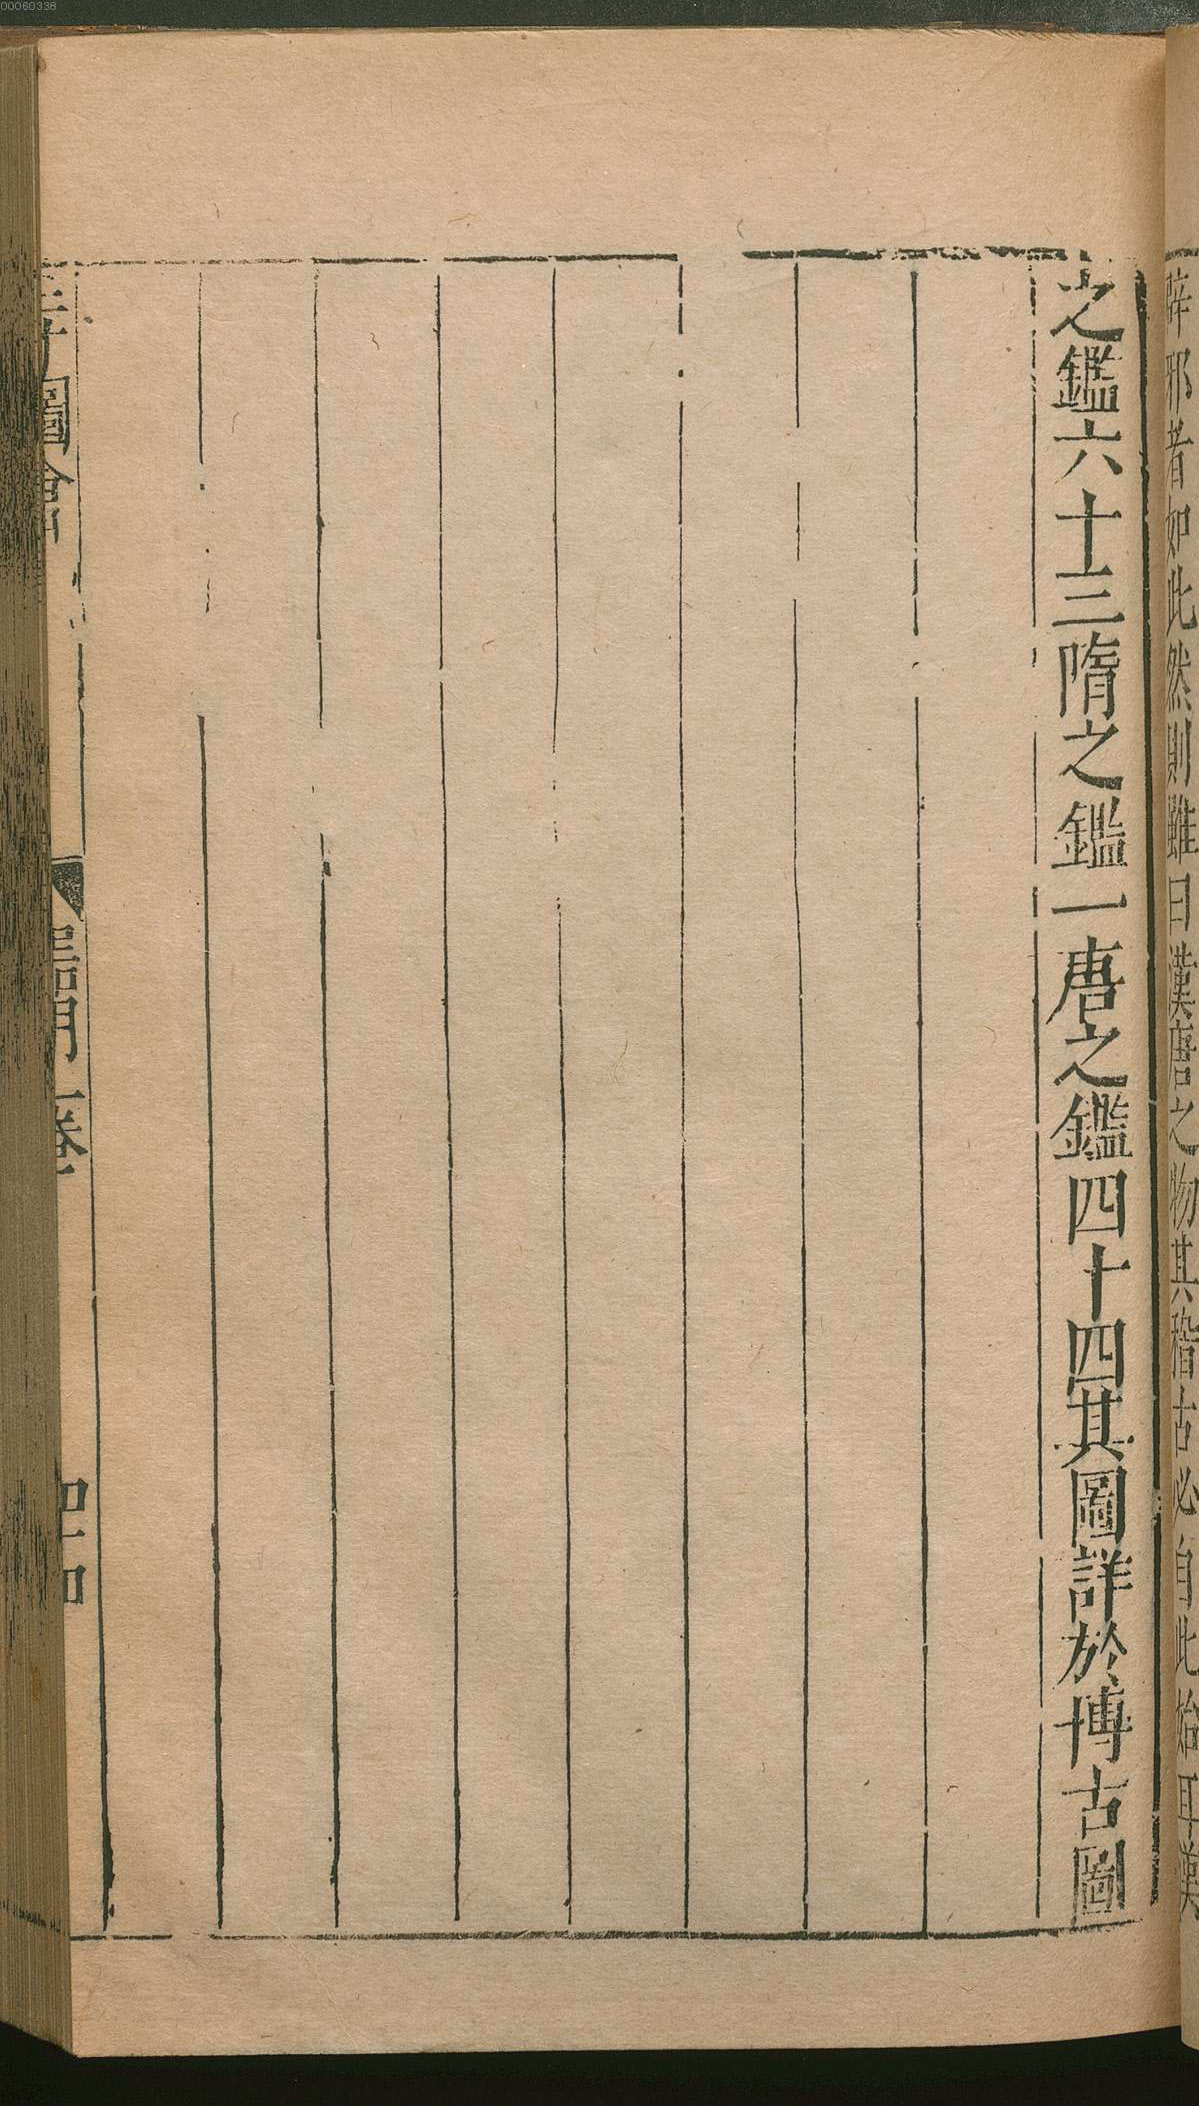 辟邪者如此然則雖曰漢唐之物其稽古必自此始耳漢
之鑑六十三隋之鑑一唐之鑑四十四其圖詳於博古圖
圖會
卷
00060338